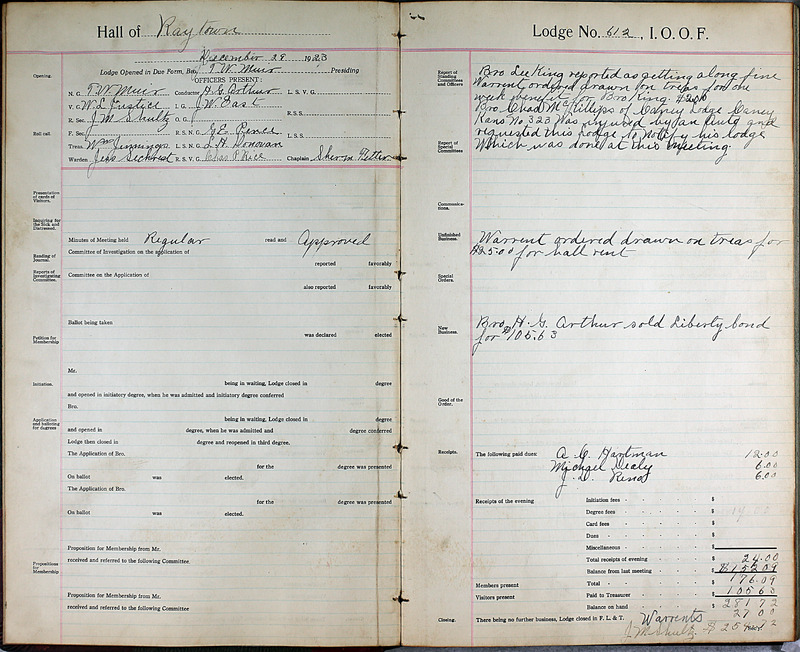 Hall of Raytown
December 28 1923
Opening.
Lodge Opened in Due Form, Bro. T. W. Muir Presiding
OFFICERS PRESENT:
N. G. T. W. Muir Conductor H. G. Arthur L. S. V. G.
V. G. W. L. Eustice I. G. J. W. East R. S. S.
R. Sec. J. M. Shultz O. G.
Roll call.
F. Sec. R. S. N. G. G. E. Rence L. S. S.
Treas. Wm Jennings L. S. N. G. L. H. Donovan
Warden Jess Sechrest R. S. V. G. Chas. P. Rice Chaplain Sherm Fetter
Presentation of cards of Visitors.
Inquiring for the Sick and Distressed.
Minutes of Meeting held Regular read and Approved
Reading of Journal.
Committee of Investigation on the application of
reported favorably
Reports of Investigating Committee.
Committee on the Application of
also reported favorably
Ballot being taken
was declared elected
Petition for Membership
Mr.
Initiation.
being in waiting, Lodge closed in degree
and opened in initiatory degree, when he was admitted and initiatory degree conferred
Bro.
Application and balloting for degrees
being in waiting, Lodge closed in degree
and opened in degree, when he was admitted and degree conferred
Lodge then closed in degree and reopened in third degree.
The Application of Bro.
for the degree was presented
On ballot was elected.
The Application of Bro.
for the degree was presented
On ballot was elected.
Proposition for Membership from Mr.
Propositions for Membership
received and referred to the following Committee.
Proposition for Membership from Mr.
received and referred to the following Committee
Lodge No. 612, I. O. O. F.
Report of Standing Committees and Officers
Bro Lee King reported as getting along fine
Warrent ordered drawn on treas for one
week benefit for Bro King. $2.00
Bro. Chad McPhillips of Caney Lodge Caney
Kans No 323 Was injured by an auto and
Report of Special Committees
requested this Lodge to Notify his lodge
Which was done at this meeting.
Communications.
Unfinished Business.
Warrent ordered drawn on treas for
$25.00 for hall rent
Special Orders.
New Business.
Bro. H. G. Arthur sold Liberty bond
for $105.63
Good of the Order.
Receipts.
The following paid dues: A. G. Hartman 12.00
Michael Dealy 6.00
J. D. Reno 6.00
Receipts of the evening Initiation fees $
Degree fees $
Card fees $
Dues $
Miscellaneous $
Total receipts of evening $ 24.00
Balance from last meeting $ 152.09
Members present Total $ 176.09
Visitors present Paid to Treasurer $ 105.63
Balance on hand $ 281.72
Closing. There being no further business, Lodge closed in F. L. & T. Warrents 27.00
J. M. Shultz $ 254.72